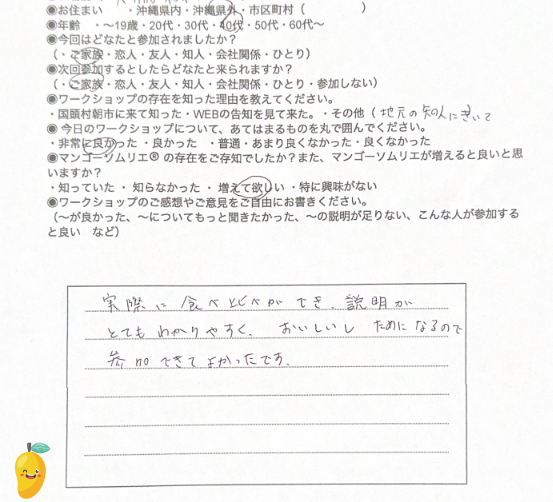 ◉お住まい ・沖縄県内・沖縄県外・市区町村（ ）
◉年齢 ・～19歳・20代・30代・40代・50代・60代～
◉今回はどなたと参加されましたか？
（・ご家族・恋人・友人・知人・会社関係・ひとり）
◉次回参加するとしたらどなたと来られますか？
（・ご家族・恋人・友人・知人・会社関係・ひとり・参加しない）
◉ワークショップの存在を知った理由を教えてください。
・国頭村朝市に来て知った・WEBの告知を見て来た。・その他（ 地元の知人にきいて
◉ 今日のワークショップについて、あてはまるものを丸で囲んでください。
・非常に良かった ・良かった ・普通・あまり良くなかった・良くなかった
◉マンゴーソムリエ® の存在をご存知でしたか？また、マンゴーソムリエが増えると良いと思
いますか？
・知っていた ・ 知らなかった ・ 増えて欲しい ・特に興味がない
◉ワークショップのご感想やご意見をご自由にお書きください。
（～が良かった、～についてもっと聞きたかった、～の説明が足りない、こんな人が参加する
と良い など）
実際に食べ比べができ、説明が
とてもわかりやすく、 おいしいし ためになるので
参加できてよかったです。